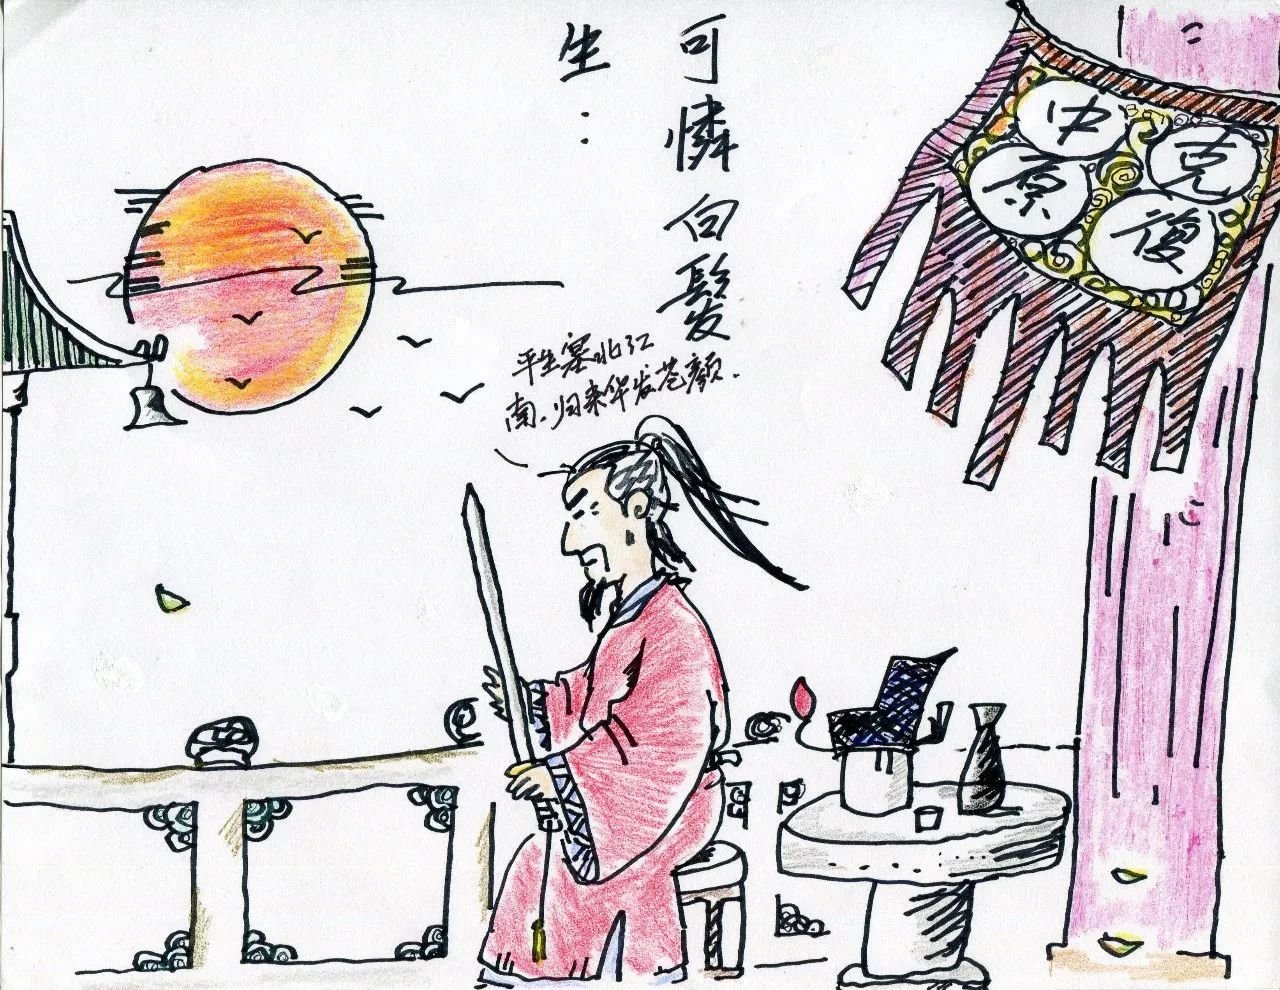 可憐白髮
生：
平生塞北江
南、归来华发苍颜.
克復
中原